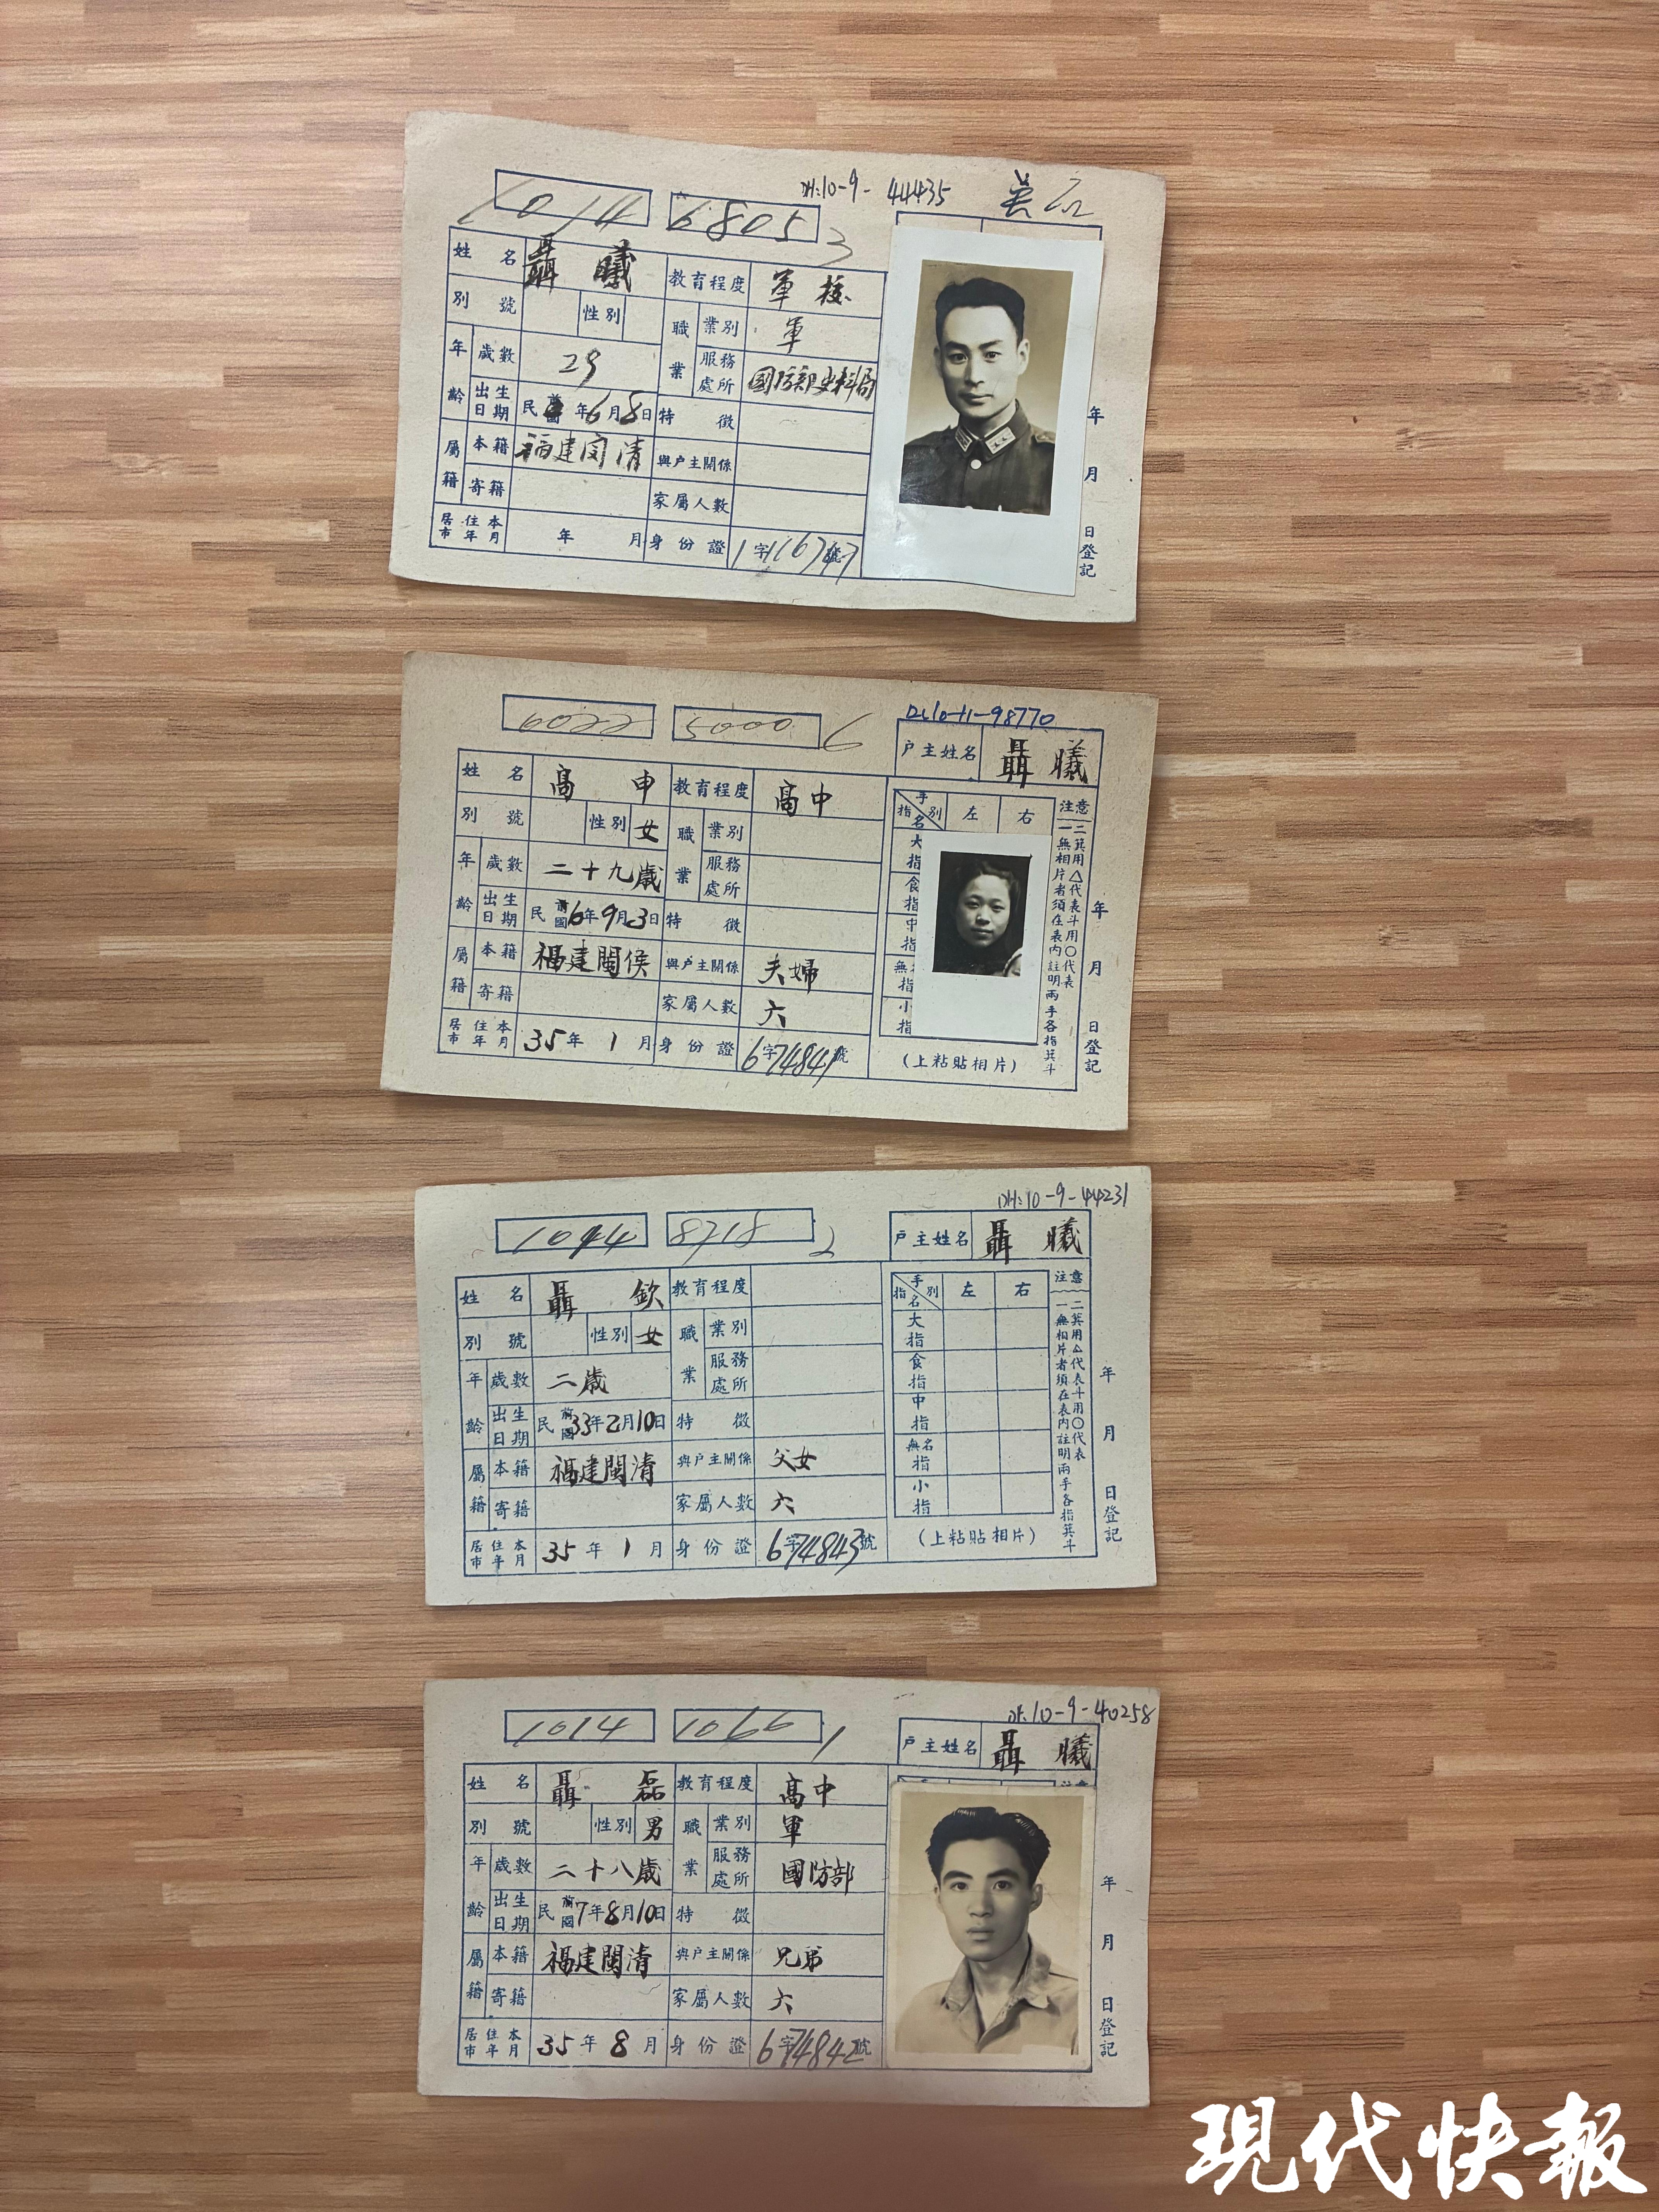 DH:10-9-44435
1014 6805 3
姓名 聶曦 教育程度 軍校
別號 性別 職業 業別 軍
年齡 歲數 29 服務處所 國防部史料局
出生日期 民國 年6月8日 特徵
屬籍 本籍 福建闽清 與户主關係
寄籍 家屬人數
居住本市年月 年 月 身份證 1字116747號
年 月 日登記
6022 5000 6
DL10-11-98770
户主姓名 聶曦
姓名 高申 教育程度 高中
別號 性別 女 職業 業別
年齡 歲數 二十九歲 服務處所
出生日期 民國6年9月3日 特徵
屬籍 本籍 福建閩侯 與户主關係 夫婦
寄籍 家屬人數 六
居住本市年月 35年1月 身份證 6字74841號
手別 指名 左 右
大指
食指
中指
無 指
小指
(上粘貼相片)
注意
一無相片者須在表內註明兩手各指箕斗
二箕用△代表斗用○代表
年 月 日登記
DH:10-9-44231
1014 8718 2
户主姓名 聶曦
姓名 聶欽 教育程度
別號 性別 女 職業 業別
年齡 歲數 二歲 服務處所
出生日期 民國33年2月10日 特徵
屬籍 本籍 福建閩清 與户主關係 父女
寄籍 家屬人數 六
居住本市年月 35年1月 身份證 6字74843號
手別 指名 左 右
大指
食指
中指
無名指
小指
(上粘貼相片)
注意
一無相片者須在表內註明兩手各指箕斗
二箕用△代表斗用○代表
年 月 日登記
10-9-40258
1014 1066 1
户主姓名 聶曦
姓名 聶磊 教育程度 高中
別號 性別 男 職業 業別 軍
年齡 歲數 二十八歲 服務處所 國防部
出生日期 民國7年8月10日 特徵
屬籍 本籍 福建閩清 與户主關係 兄弟
寄籍 家屬人數 六
居住本市年月 35年8月 身份證 6字74842號
年 月 日登記
現代快報